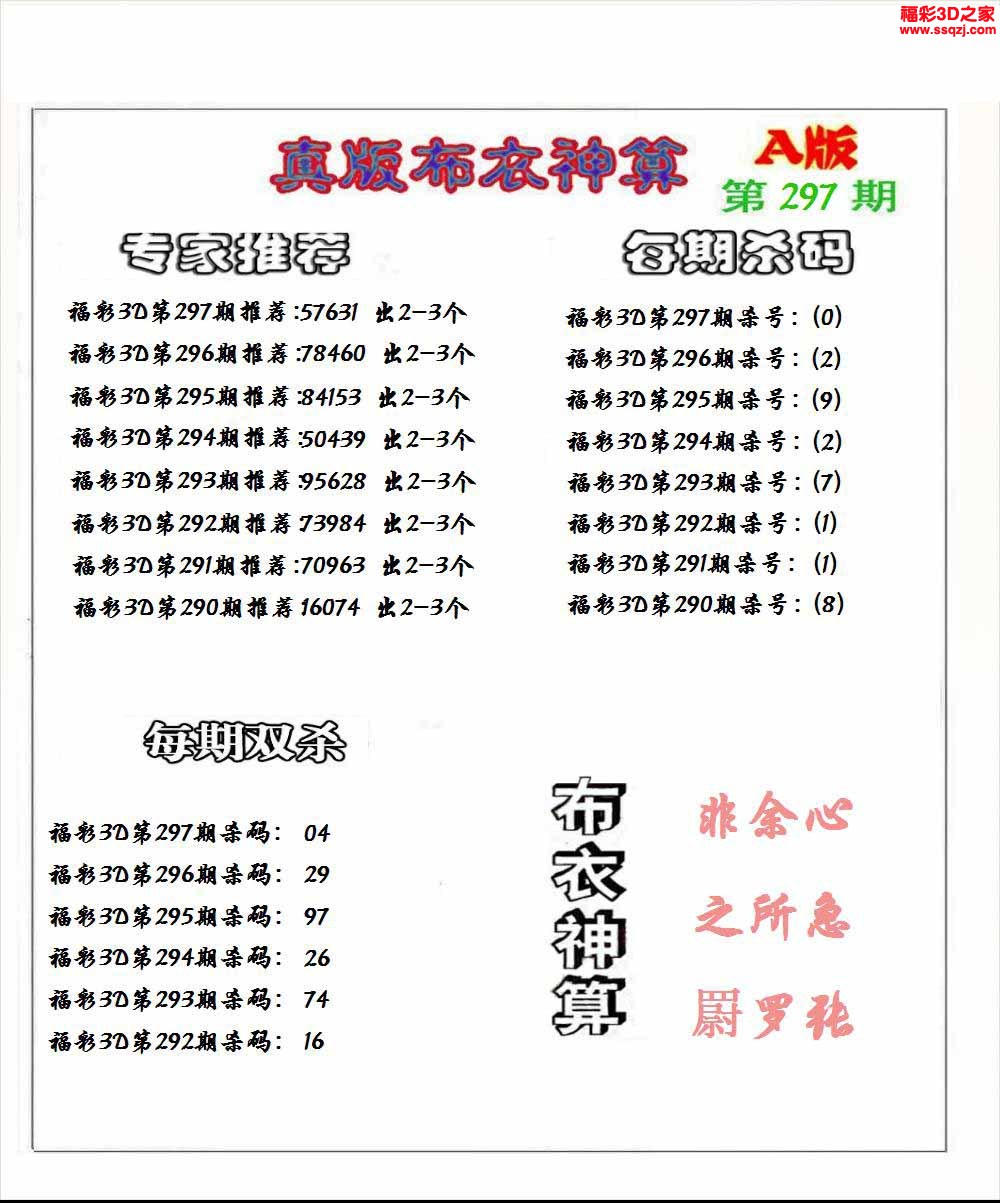 福彩3D之家
www.ssqzj.com
真版布衣神算
A版
第297期
专家推荐
福彩3D第297期推荐:57631 出2-3个
福彩3D第296期推荐:78460 出2-3个
福彩3D第295期推荐:84153 出2-3个
福彩3D第294期推荐:50439 出2-3个
福彩3D第293期推荐:95628 出2-3个
福彩3D第292期推荐:73984 出2-3个
福彩3D第291期推荐:70963 出2-3个
福彩3D第290期推荐16074 出2-3个
每期杀码
福彩3D第297期杀号：(0)
福彩3D第296期杀号：(2)
福彩3D第295期杀号：(9)
福彩3D第294期杀号：(2)
福彩3D第293期杀号：(7)
福彩3D第292期杀号：(1)
福彩3D第291期杀号：(1)
福彩3D第290期杀号：(8)
每期双杀
福彩3D第297期杀码： 04
福彩3D第296期杀码： 29
福彩3D第295期杀码： 97
福彩3D第294期杀码： 26
福彩3D第293期杀码： 74
福彩3D第292期杀码： 16
布衣神算
非余心
之所急
罻罗张